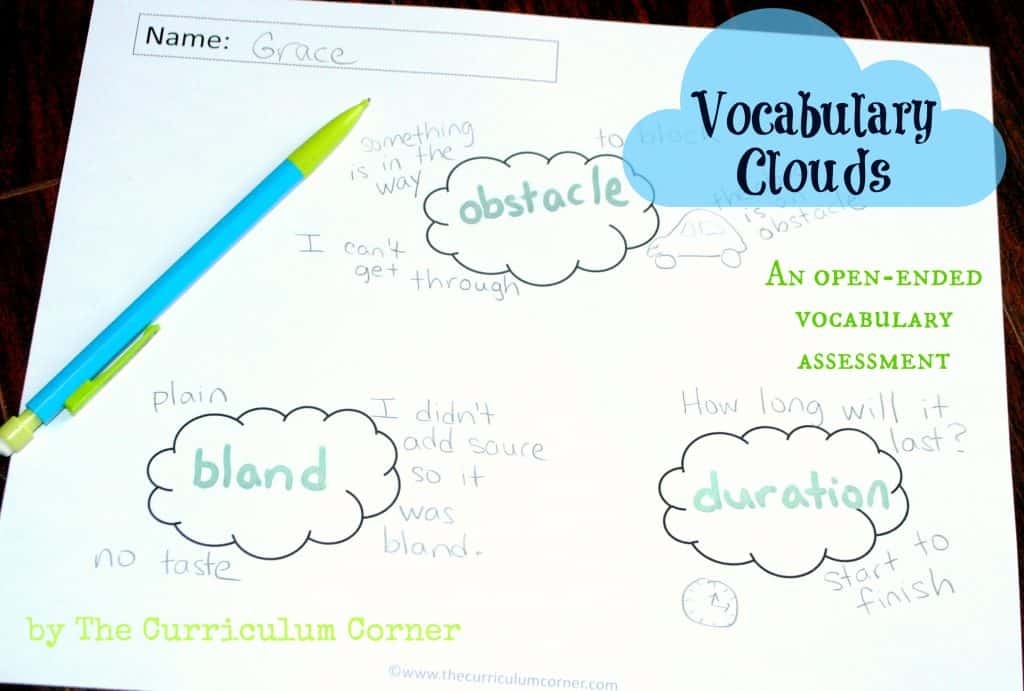 Name: Grace
Vocabulary
Clouds
something
is in the
way
to block
obstacle
is an
obstacle
I can't
get through
An open-ended
vocabulary
assessment
plain
bland
I didn't
add sauce
so it
was
bland.
no taste
How long will it
last?
duration
start to
finish
by The Curriculum Corner
©www.thecurriculumcorner.com